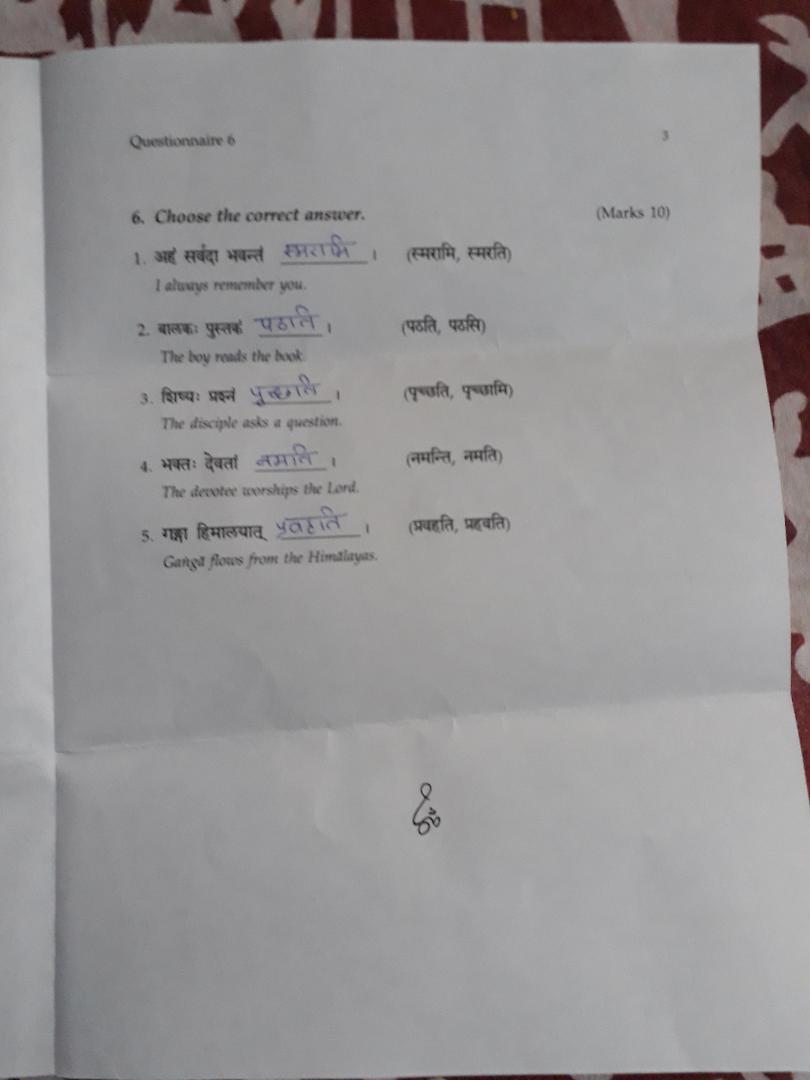 Questionnaire 6 3
6. Choose the correct answer. (Marks 10)
1. अहं सर्वदा भवन्तं स्मरामि । (स्मरामि, स्मरति)
I always remember you.
2. बालकः पुस्तकं पठति । (पठति, पठसि)
The boy reads the book.
3. शिष्यः प्रश्नं पृच्छति । (पृच्छति, पृच्छामि)
The disciple asks a question.
4. भक्तः देवतां नमति । (नमन्ति, नमति)
The devotee worships the Lord.
5. गङ्गा हिमालयात् प्रवहति । (प्रवहति, प्रहवति)
Gaṅgā flows from the Himālayas.